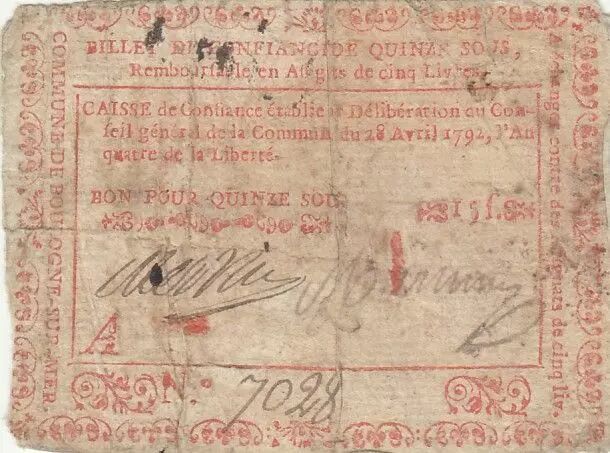 BILLET DE CONFIANC DE QUINZE SOUS,
Remboursable en Assignats de cinq Livres.
CAISSE de Confiance établie Délibération du Con-
seil général de la Commun du 28 Avril 1792, l'An
quatre de la Liberté.
BON POUR QUINZE SOU
15 s.
A
N.º 7028
COMMUNE-DE-BOULOGNE-SUR-MER.
A échanger contre des Assignats de cinq liv.